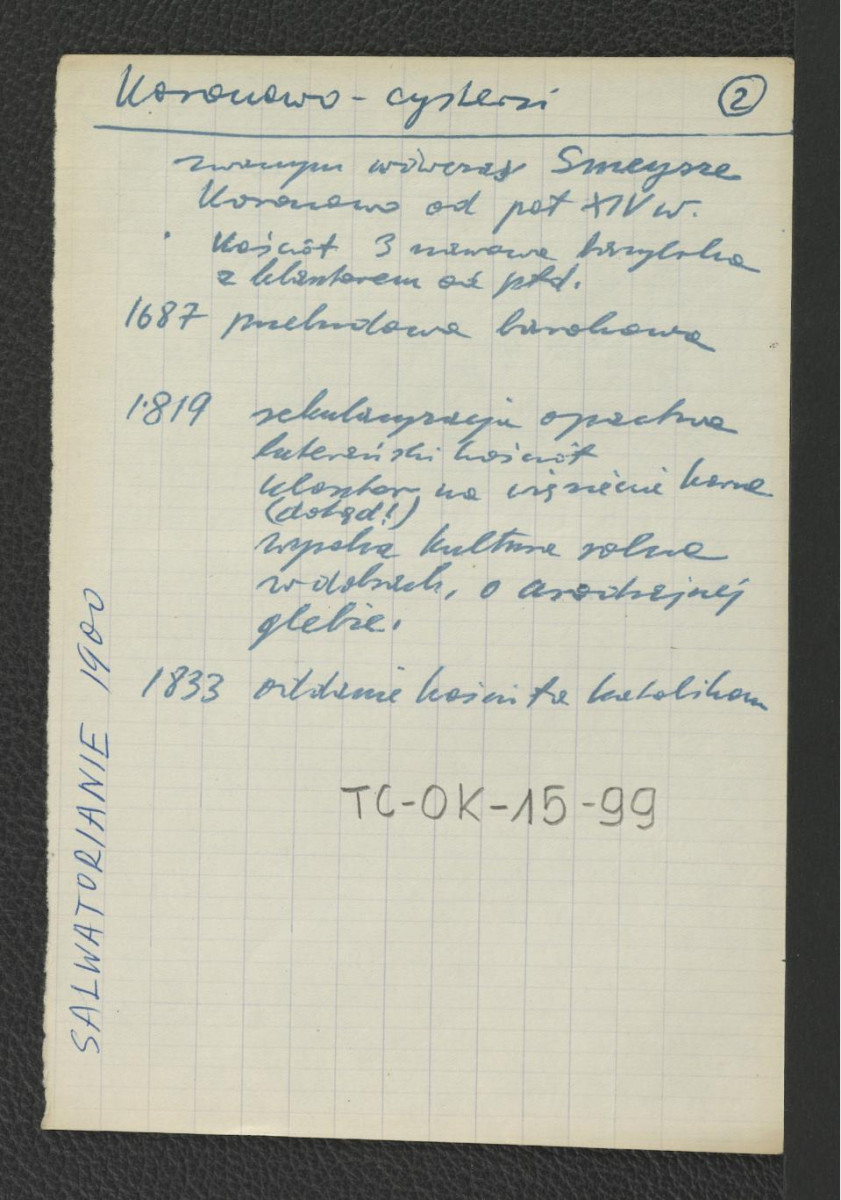 Koronowo - cystersi ②
zwanym wówczas Smeysze
Koronowo od poł XIV w.
Kościół 3 nawowa bazylika
z klasztorem od płd.
1687 przebudowa barokowa
1819 sekularyzacja opactwa
luterański kościół
klasztor na więzienie karne
(dotąd!)
wysoka kultura rolna
w dobrach, o urodzajnej
glebie.
1833 oddanie kościoła katolikom
TC-OK-15-99
SALWATORIANIE 1900